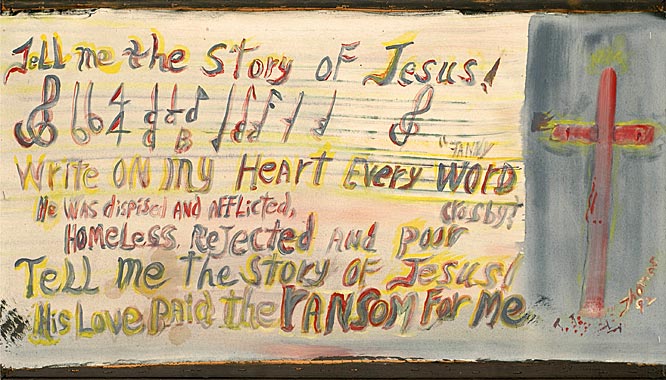 Tell me the Story of Jesus!
4
4
B
"FANNY
Write ON my Heart Every WORD
Crosby"
He WAS dispised AND AFFLICTED,
HOMELESS, Rejected AND poor
Tell me the Story of Jesus!
His Love PAID the RANSOM For Me